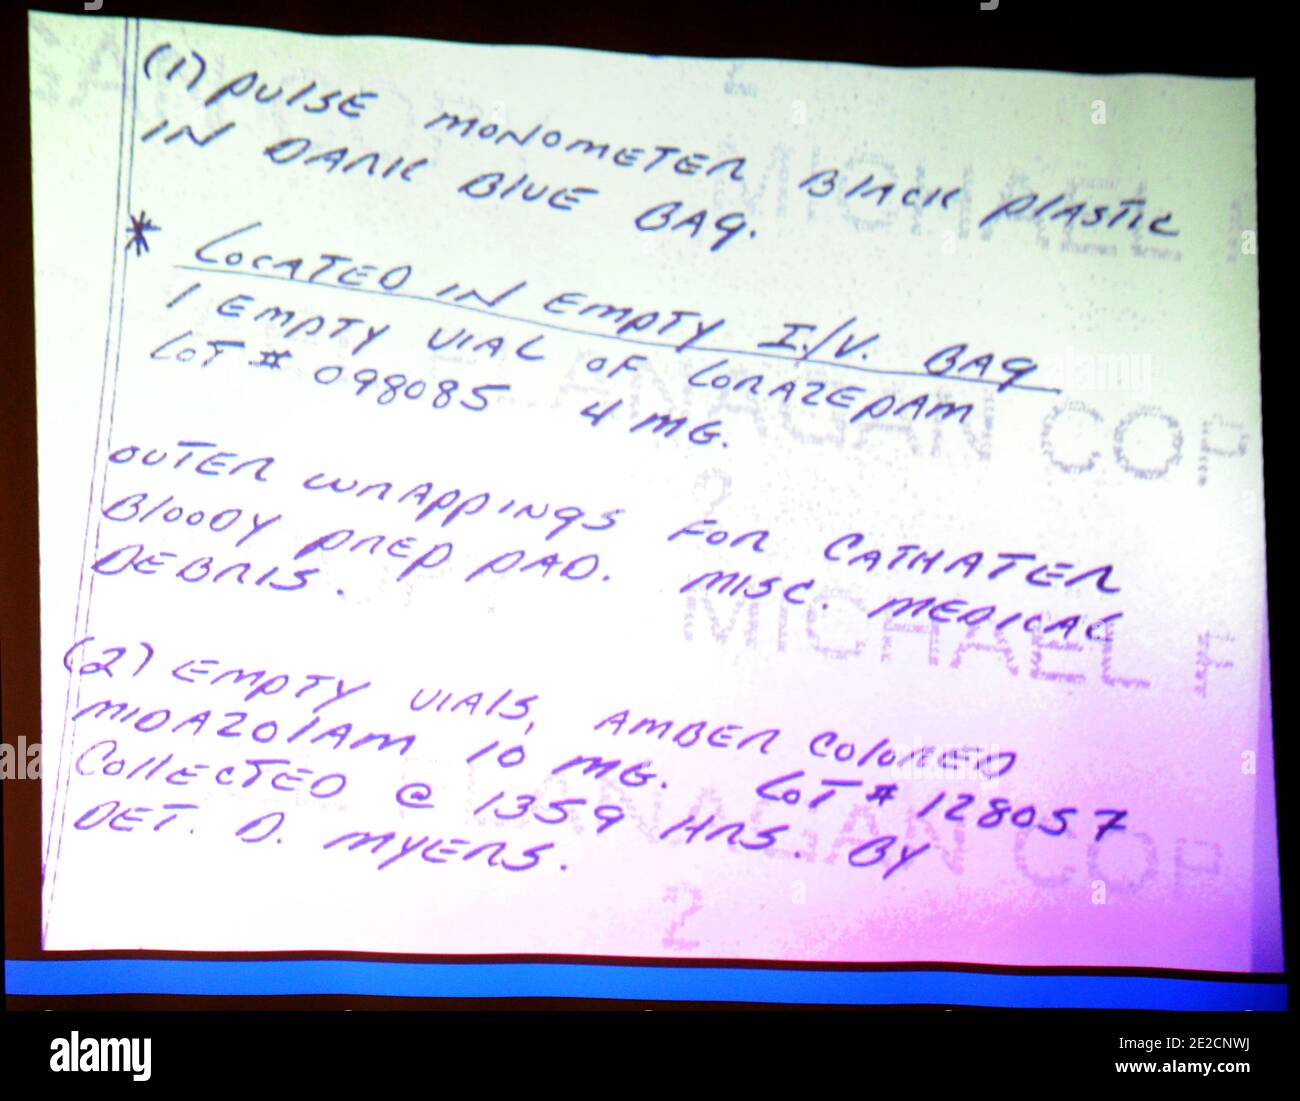 (1) PULSE MONOMETER BLACK PLASTIC
IN DARK BLUE BAG.
* LOCATED IN EMPTY I./V. BAG
1 EMPTY VIAL OF LORAZEPAM
LOT # 098085 4 MG.
OUTER WRAPPINGS FOR CATHATER
BLOODY PREP PAD. MISC. MEDICAL
DEBRIS.
(2) EMPTY VIALS, AMBER COLORED
MIDAZOLAM 10 MG. LOT # 128057
COLLECTED @ 1359 HRS. BY
DET. D. MYERS.
MICHAEL F
FLANAGAN COP
2
MICHAEL F
FLANAGAN COP
2
alamy
Image ID: 2E2CNWJ
www.alamy.com